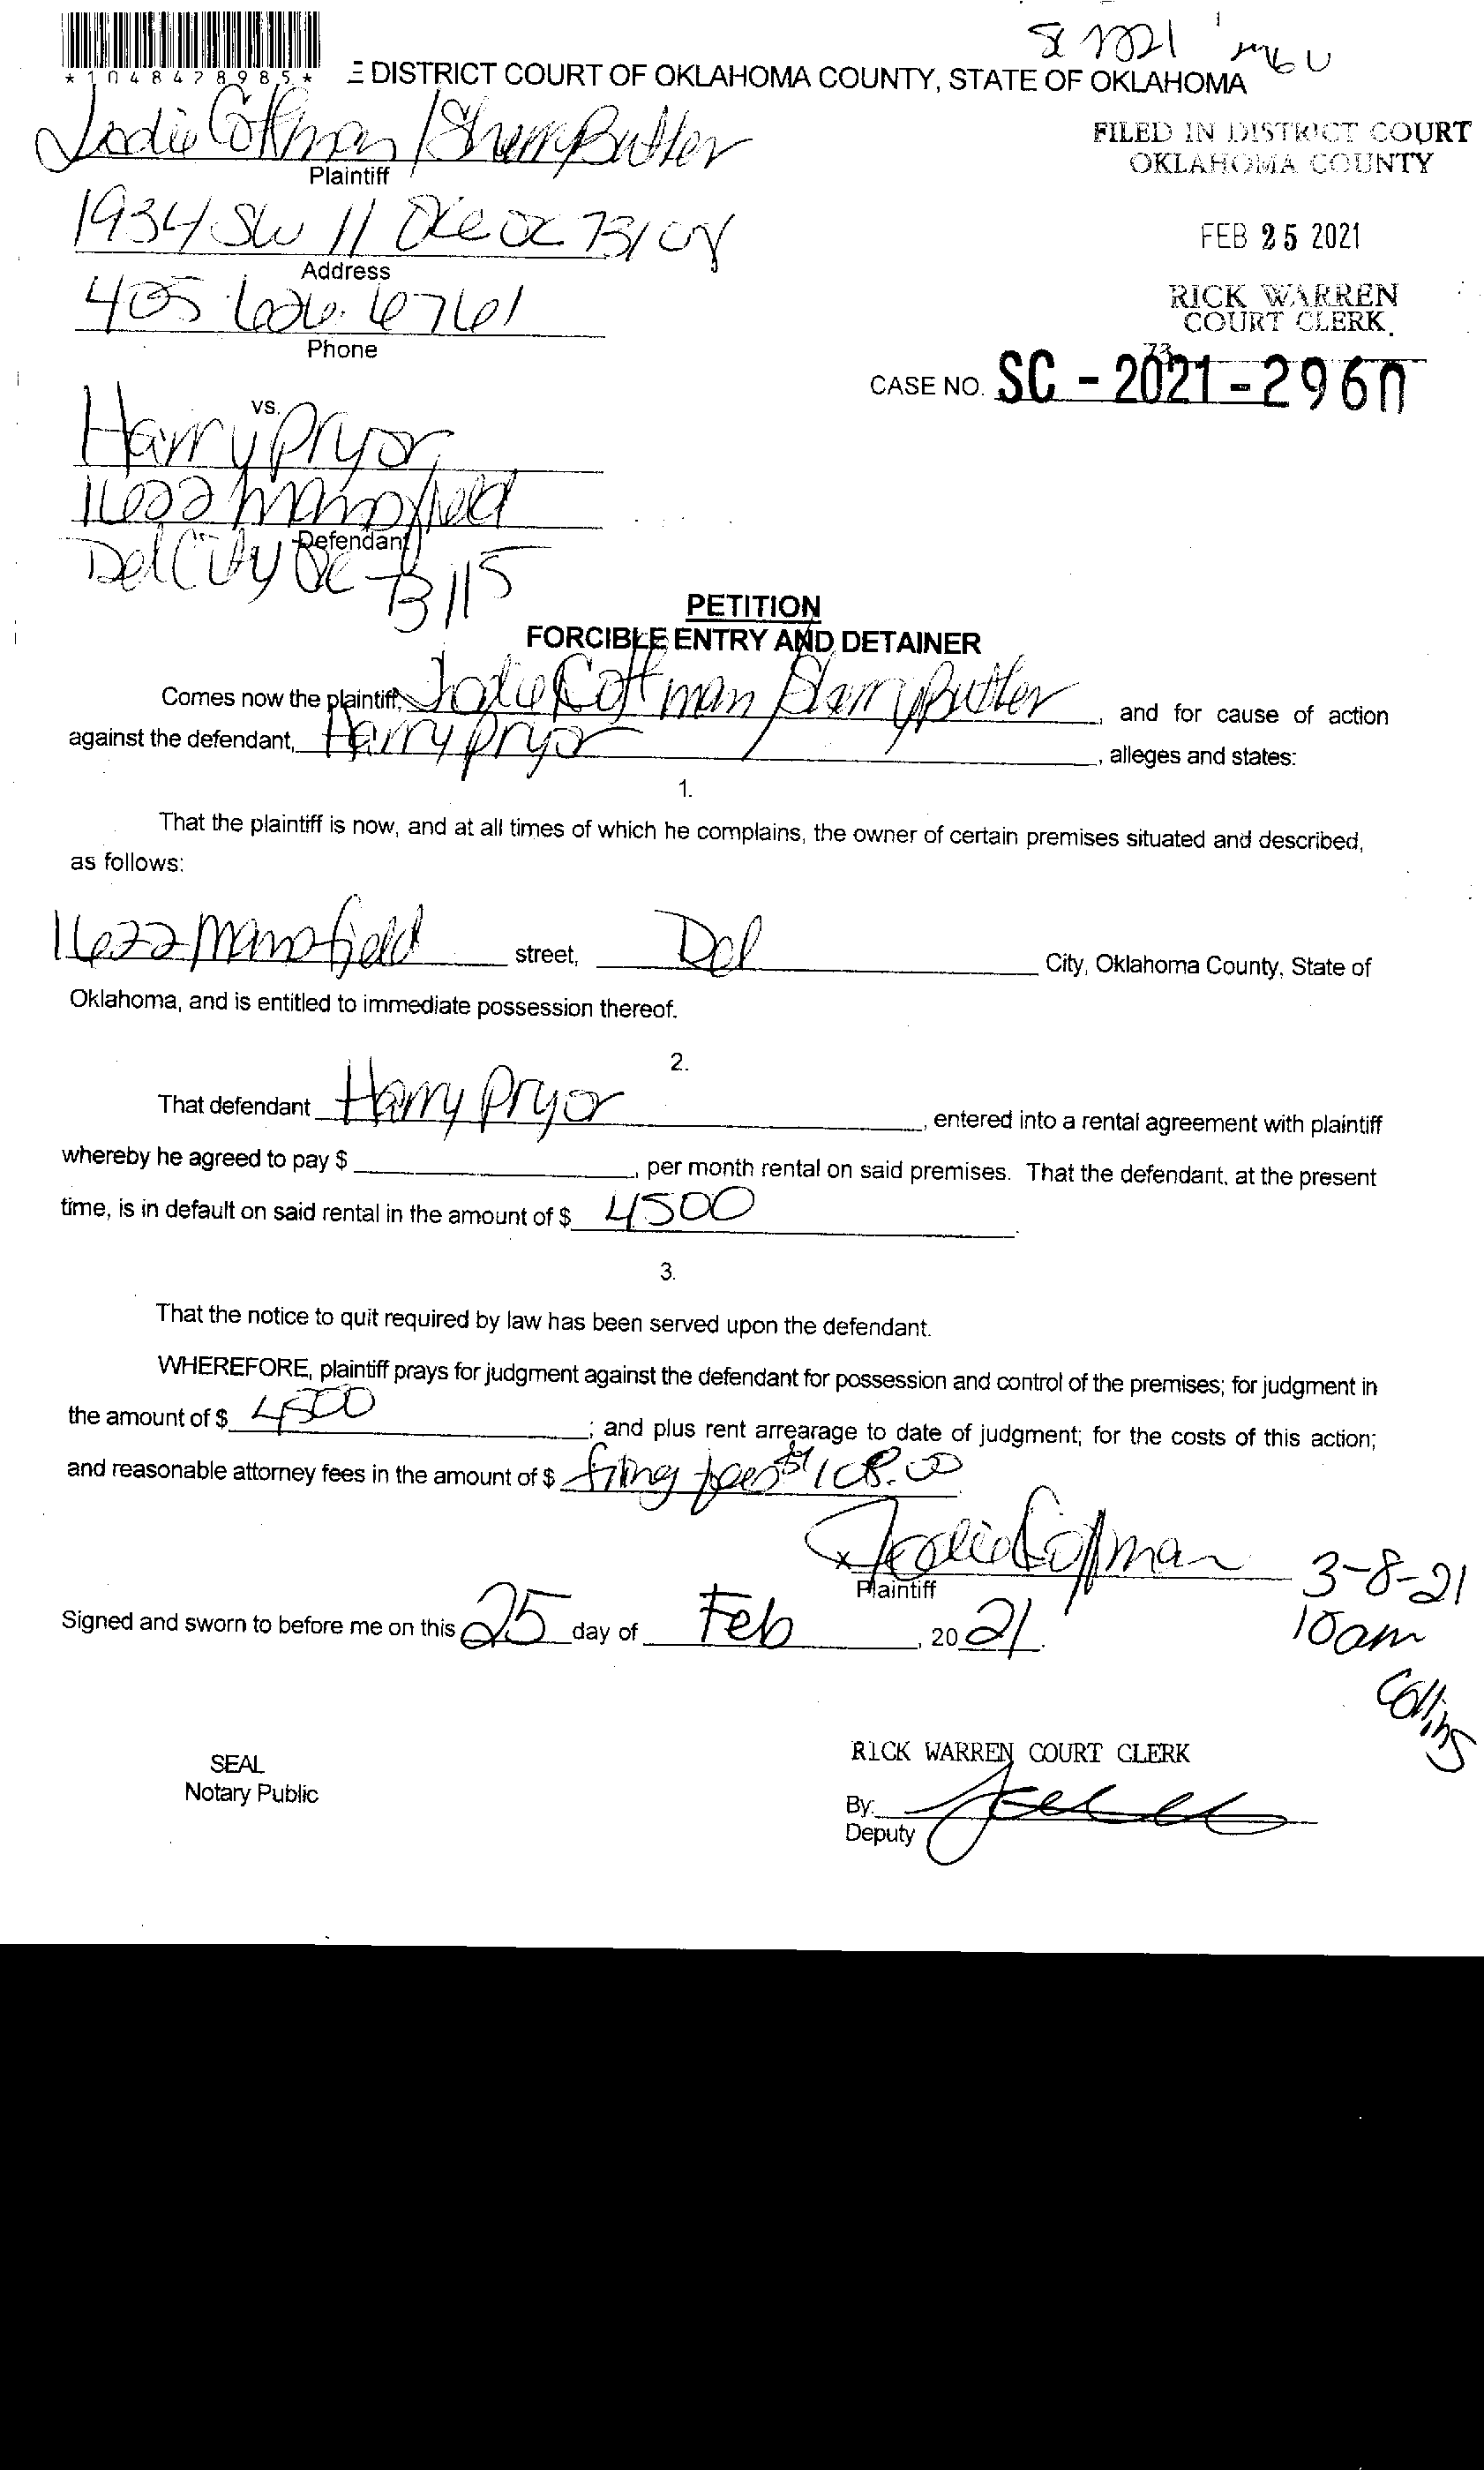 *1048478985*
DISTRICT COURT OF OKLAHOMA COUNTY, STATE OF OKLAHOMA
Jodie Coffman / Sherry Butler
Plaintiff
FILED IN DISTRICT COURT
OKLAHOMA COUNTY
1934 SW 11 OKC OK 73108
Address
FEB 25 2021
405 626.6761
Phone
RICK WARREN
COURT CLERK
73
CASE NO. SC - 2021 - 2960
vs.
Harry Pryor
1622 Mansfield
Defendant
Del City OK 73115
PETITION
FORCIBLE ENTRY AND DETAINER
Comes now the plaintiff, Jodie Coffman / Sherry Butler, and for cause of action
against the defendant, Harry Pryor, alleges and states:
1.
That the plaintiff is now, and at all times of which he complains, the owner of certain premises situated and described,
as follows:
1622 Mansfield street, Del City, Oklahoma County, State of
Oklahoma, and is entitled to immediate possession thereof.
2.
That defendant Harry Pryor, entered into a rental agreement with plaintiff
whereby he agreed to pay $, per month rental on said premises. That the defendant, at the present
time, is in default on said rental in the amount of $ 4500.
3.
That the notice to quit required by law has been served upon the defendant.
WHEREFORE, plaintiff prays for judgment against the defendant for possession and control of the premises; for judgment in
the amount of $ 4500; and plus rent arrearage to date of judgment; for the costs of this action;
and reasonable attorney fees in the amount of $ filing fees $108.00
x Jodie Coffman
Plaintiff
3-8-21
10am
Collins
Signed and sworn to before me on this 25 day of Feb, 20 21.
SEAL
Notary Public
RICK WARREN COURT CLERK
By:
Deputy